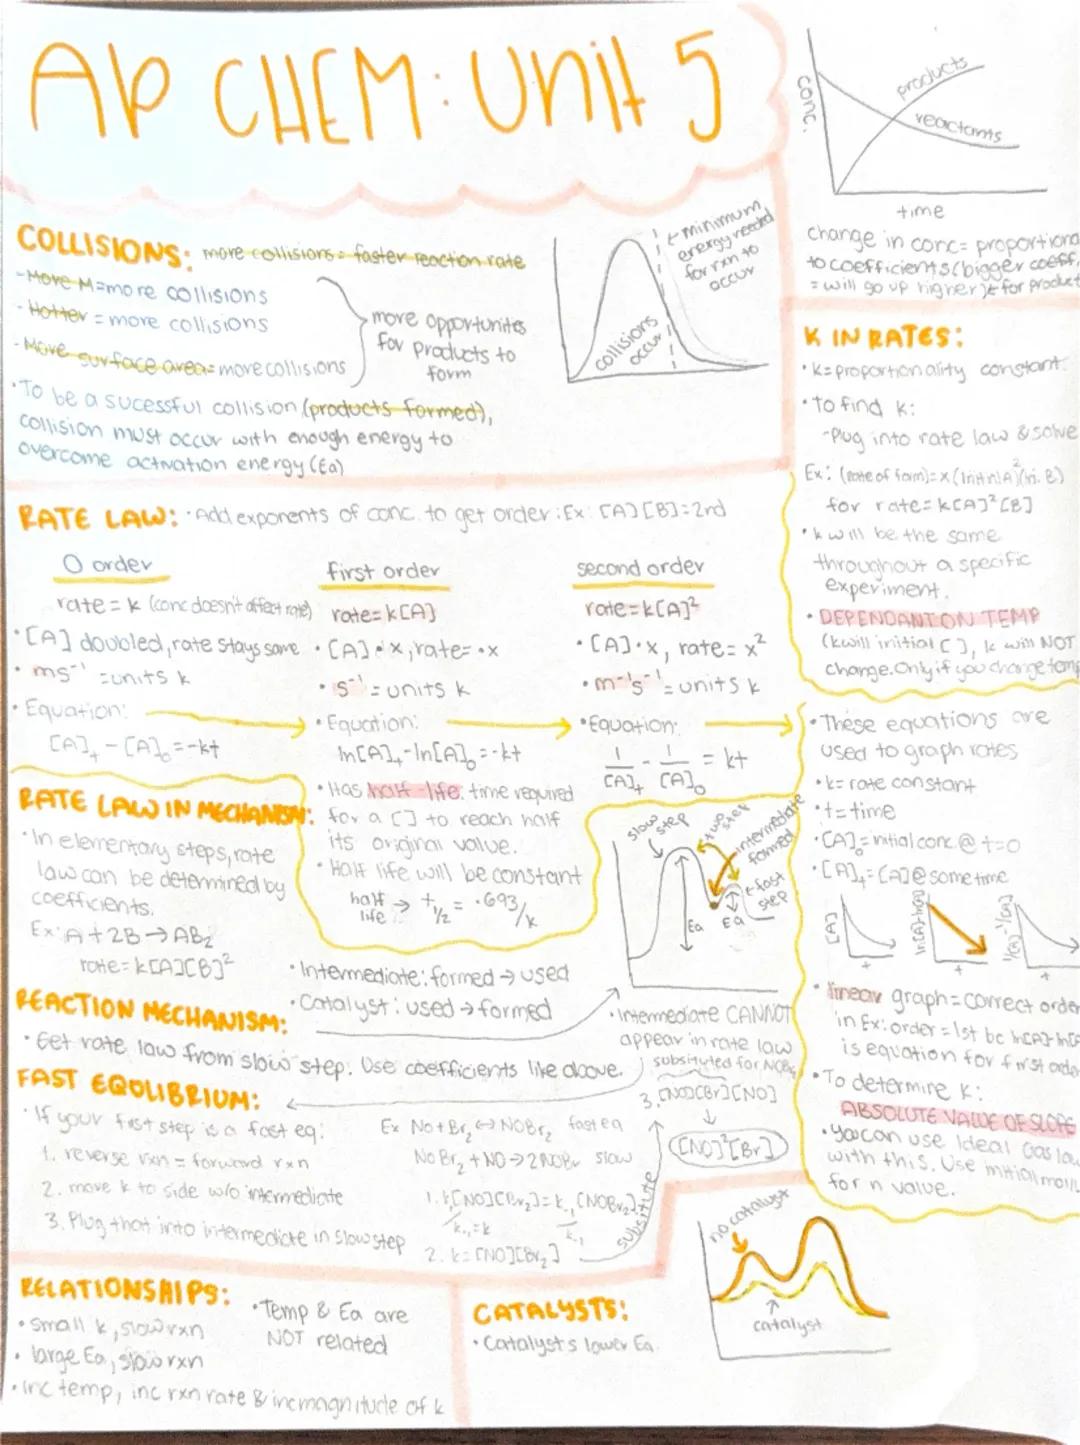 AP CHEM: Unit 5
COLLISIONS: more collisions = faster reaction rate
- More M = more collisions
- Hotter = more collisions
- More surface area = more collisions
more opportunites
for products to
form
• To be a sucessful collision (products formed),
collision must occur with enough energy to
overcome activation energy (Ea)
minimum
energy needed
for rxn to
occur
collisions
occur
conc.
products
reactants
time
change in conc = proportiona
to coefficients (bigger coeff.
= will go up higher) for product
K IN RATES:
• k = proportionality constant
• To find k:
- Plug into rate law & solve
for rate = k[A]²[B]
• k will be the same
throughout a specific
experiment.
• DEPENDANT ON TEMP
(k will initial [ ], k will NOT
change. Only if you change temp
RATE LAW: • Add exponents of conc. to get order: Ex: [A][B] = 2nd
0 order
rate = k (conc doesn't affect rate)
• [A] doubled, rate stays same
• ms⁻¹ = units k
• Equation:
[A]t - [A]₀ = -kt
first order
rate = k[A]
• [A] • x, rate = • x
• s⁻¹ = units k
• Equation:
ln[A]t - ln[A]₀ = -kt
• Has half-life: time required
for a [ ] to reach half
its original value.
• Half life will be constant
half life → t 1/2 = .693/k
second order
rate = k[A]²
• [A] • x, rate = x²
• m⁻¹s⁻¹ = units k
• Equation:
1/[A]t - 1/[A]₀ = kt
• These equations are
used to graph rates
• k = rate constant
• t = time
• [A]₀ = initial conc @ t=0
• [A]t = [A] @ some time
[A]
t
t
1/[A]
t
• linear graph = correct order
in Ex: order = 1st bc
is equation for first orde
• To determine k:
ABSOLUTE VALUE OF SLOPE
• you can use Ideal Gas law
with this. Use initial
for n value.
RATE LAW IN MECHANISM:
• In elementary steps, rate
law can be determined by
coefficients.
Ex: A + 2B → AB₂
rate = k[A][B]²
slow
step
intermediate
formed
fast
step
Ea
Ea
• Intermediate: formed → used
• Catalyst: used → formed
REACTION MECHANISM:
• Get rate law from slow step. Use coefficients like above.
• Intermediate CANNOT
appear in rate law
subsituted for NOBr₂
3. [NO][Br][NO]
[NO]²[Br]
FAST EQULIBRIUM:
• If your first step is a fast eq:
1. reverse rxn = forward rxn
2. move k to side w/o intermediate
3. Plug that into intermediate in slow step
Ex No + Br₂ ↔ NOBr₂ fast eq
NoBr₂ + NO → 2NOBr slow
1. k[NO][Br₂] = k₋₁[NOBr₂]
k₋₁ = k
k₋₁
2. k = [NO][Br₂]
subsitute
RELATIONSHIPS:
• small k, slow rxn
• large Ea, slow rxn
• inc temp, inc rxn rate & inc magnitude of k
• Temp & Ea are
NOT related
CATALYSTS:
• Catalysts lower Ea.
no catalyst
catalyst